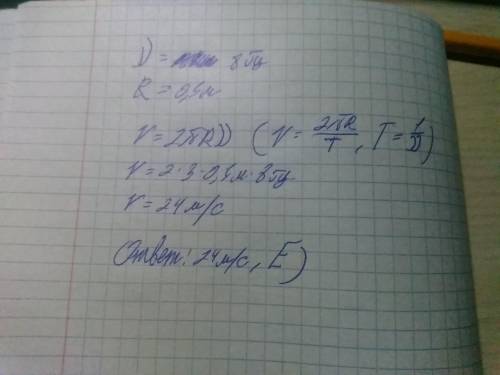 D = 8 Гц
R = 0,5м
V = 2πRD (V = 2πR/T, T = 1/D)
V = 2·3·0,5м·8Гц
V = 24 м/с
Ответ: 24 м/с, E)